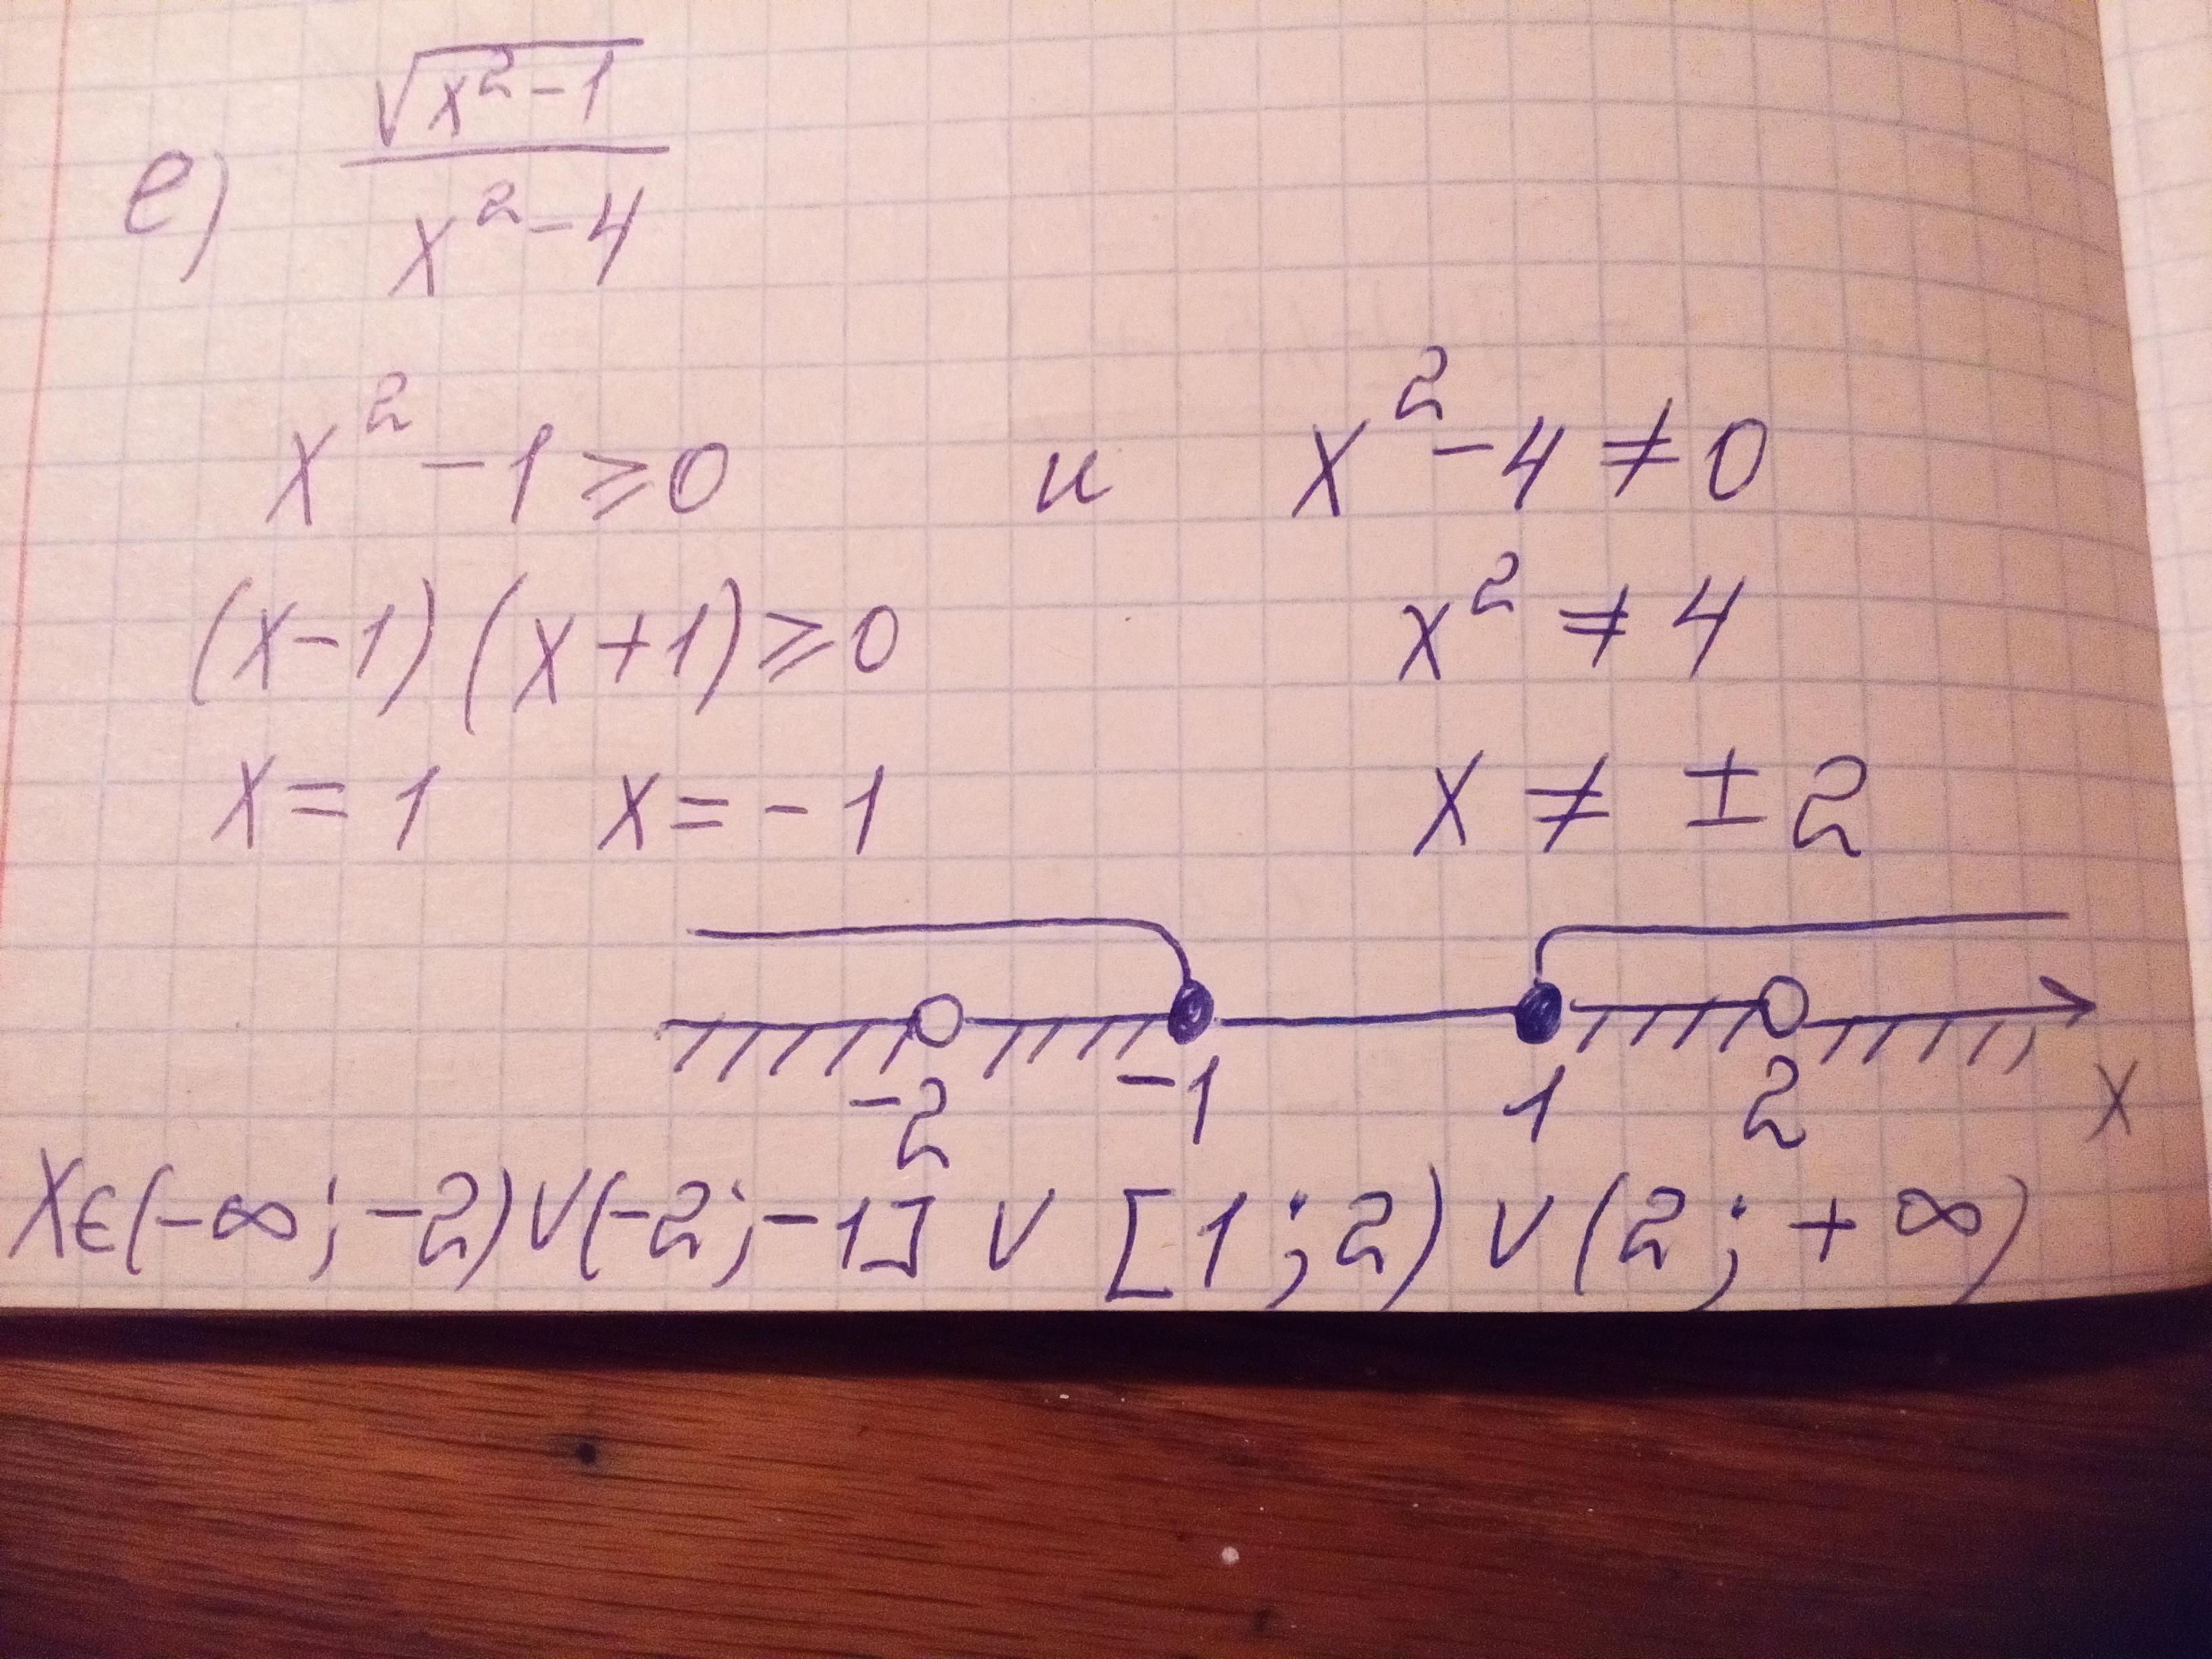 е) √x²-1
x²-4
x²-1⩾0 и x²-4≠0
(x-1)(x+1)⩾0 x²≠4
x=1 x=-1 x≠±2
-2 -1 1 2 x
x∈(-∞;-2)∨(-2;-1]∨[1;2)∨(2;+∞)